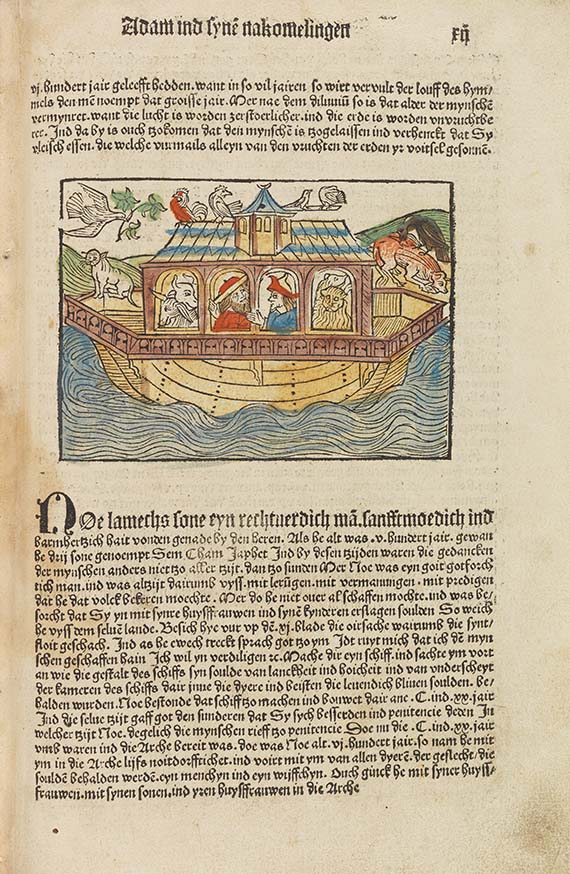 Adam ind synē nakomelingen
xij
vj. hundert jair geleefft hedden. want in so vil jairen so wirt vervult der louff des hym/
mels den mē noempt dat groisse jair. Mer nae dem diluuiū so is dat alder der mynschē
vermynret. want die lucht is worden zerstoerlicher. ind die erde is worden vnvruchtbe
rer. Ind da by is ouch tzokomen dat den mynschē is tzogelaissen ind verhenckt dat Sy
vleisch essen. die welche vurmails alleyn van den vruchten der erden yr voitsel gesonnē.
NOe lamechs sone eyn rechtuerdich mā. sanfftmoedich ind
barmhertzich hait vonden genade by den heren. Als he alt was .v. hundert jair. gewan
he drij sone genoempt Sem Cham Japhet Ind by desen tzijden waren die gedancken
der mynschen anders niet zo aller tzijt. dan tzo sunden Mer Noe was eyn goit gotforch
tich man. ind was altzijt dairumb vyss. mit lerūgen. mit vermanungen. mit predigen
dat he dat volck bekeren moechte. Mer do he niet ouer al schaffen mochte. ind was be/
sorcht dat Sy yn mit synre huysffrauwen ind synē kynderen erslagen soulden So weich
he vyss dem seluē lande. Besich hye vur vp dē .xj. blade die oirsache wairumb die synt/
floit geschach. Ind as he ewech treckt sprach got tzo ym Idt ruyt mich dat ich dē myn
schen geschaffen hain Ich wil yn verdiligen rc. Mache dir eyn schiff. ind sachte ym vort
an wie die gestalt des schiffs syn soulde van lanckheit ind hoicheit ind van vnderscheyt
der kameren des schiffs dair jnne die dyere ind beisten die leuendich bliuen soulden. be/
halden wurden. Noe bestonde dat schiff tzo machen ind bouwet dair anc .C. ind .xx. jair
Ind die selue tzijt gaff got den sunderen dat Sy sych besserden ind penitencie deden In
welcher tzijt Noe. degelich die mynschen rieff tzo penitencie Doe nu die .C. ind .xx. jair
vmb waren ind die Arche bereit was. doe was Noe alt .vj. hundert jair. so nam he mit
ym in die Arche lijfs noitdorfficheit. ind voirt mit ym van allen dyerē. der geslecht/ die
souldē behalden werdē. eyn menchyn ind eyn wijffchyn. Ouch ginck he mit syner huysf/
frauwen. mit synen sonen. ind yren huysffrauwen in die Arche